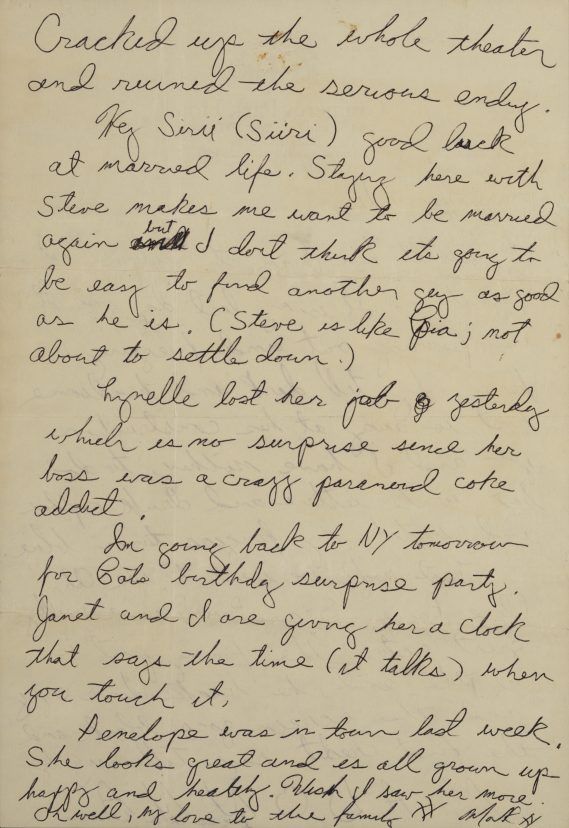 Cracked up the whole theater
and ruined the serious ending.
Hey Sirii (Siiri) good luck
at married life. Staying here with
Steve makes me want to be married
again but I don't think its going to
be easy to find another guy as good
as he is. (Steve is like Pia; not
about to settle down.)
Lynelle lost her job yesterday
which is no surprise since her
boss was a crazy paranoid coke
addict.
Im going back to NY tomorrow
for birthday surprise party.
Janet and I are giving her a clock
that says the time (it talks) when
you touch it.
Penelope was in town last week.
She looks great and is all grown up
happy and healthy. Wish I saw her more.
Oh well, my love to the family XX